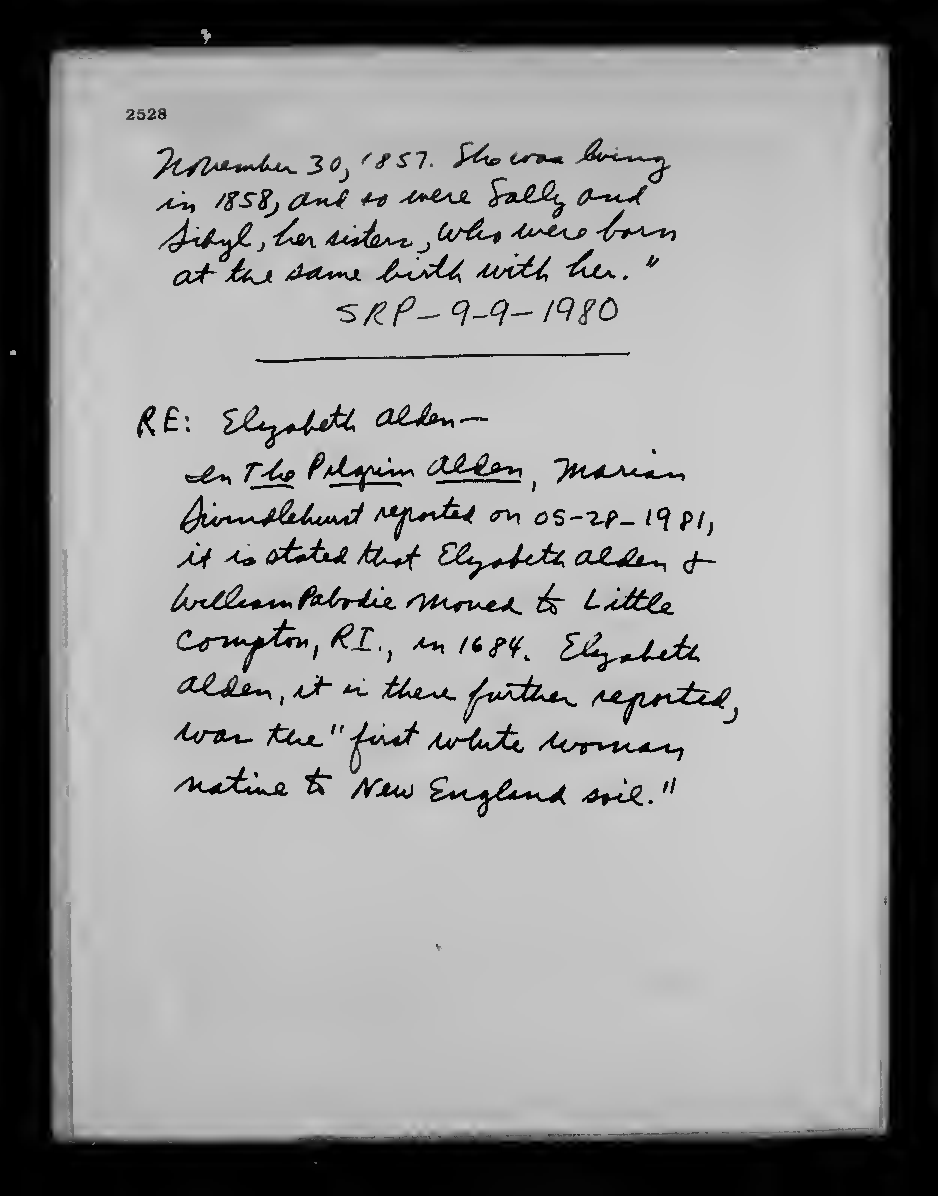 2528
November 30, 1857. She was living
in 1858, and so were Sally and
Sibyl, her sisters, who were born
at the same birth with her."
SRP - 9-9-1980
RE: Elizabeth Alden —
In The Pilgrim Alden, Marian
reported on 05-28-1981,
it is stated that Elizabeth Alden &
William Pabodie moved to Little
Compton, RI., in 1684. Elizabeth
Alden, it is there further reported,
was the "first white woman
native to New England soil."